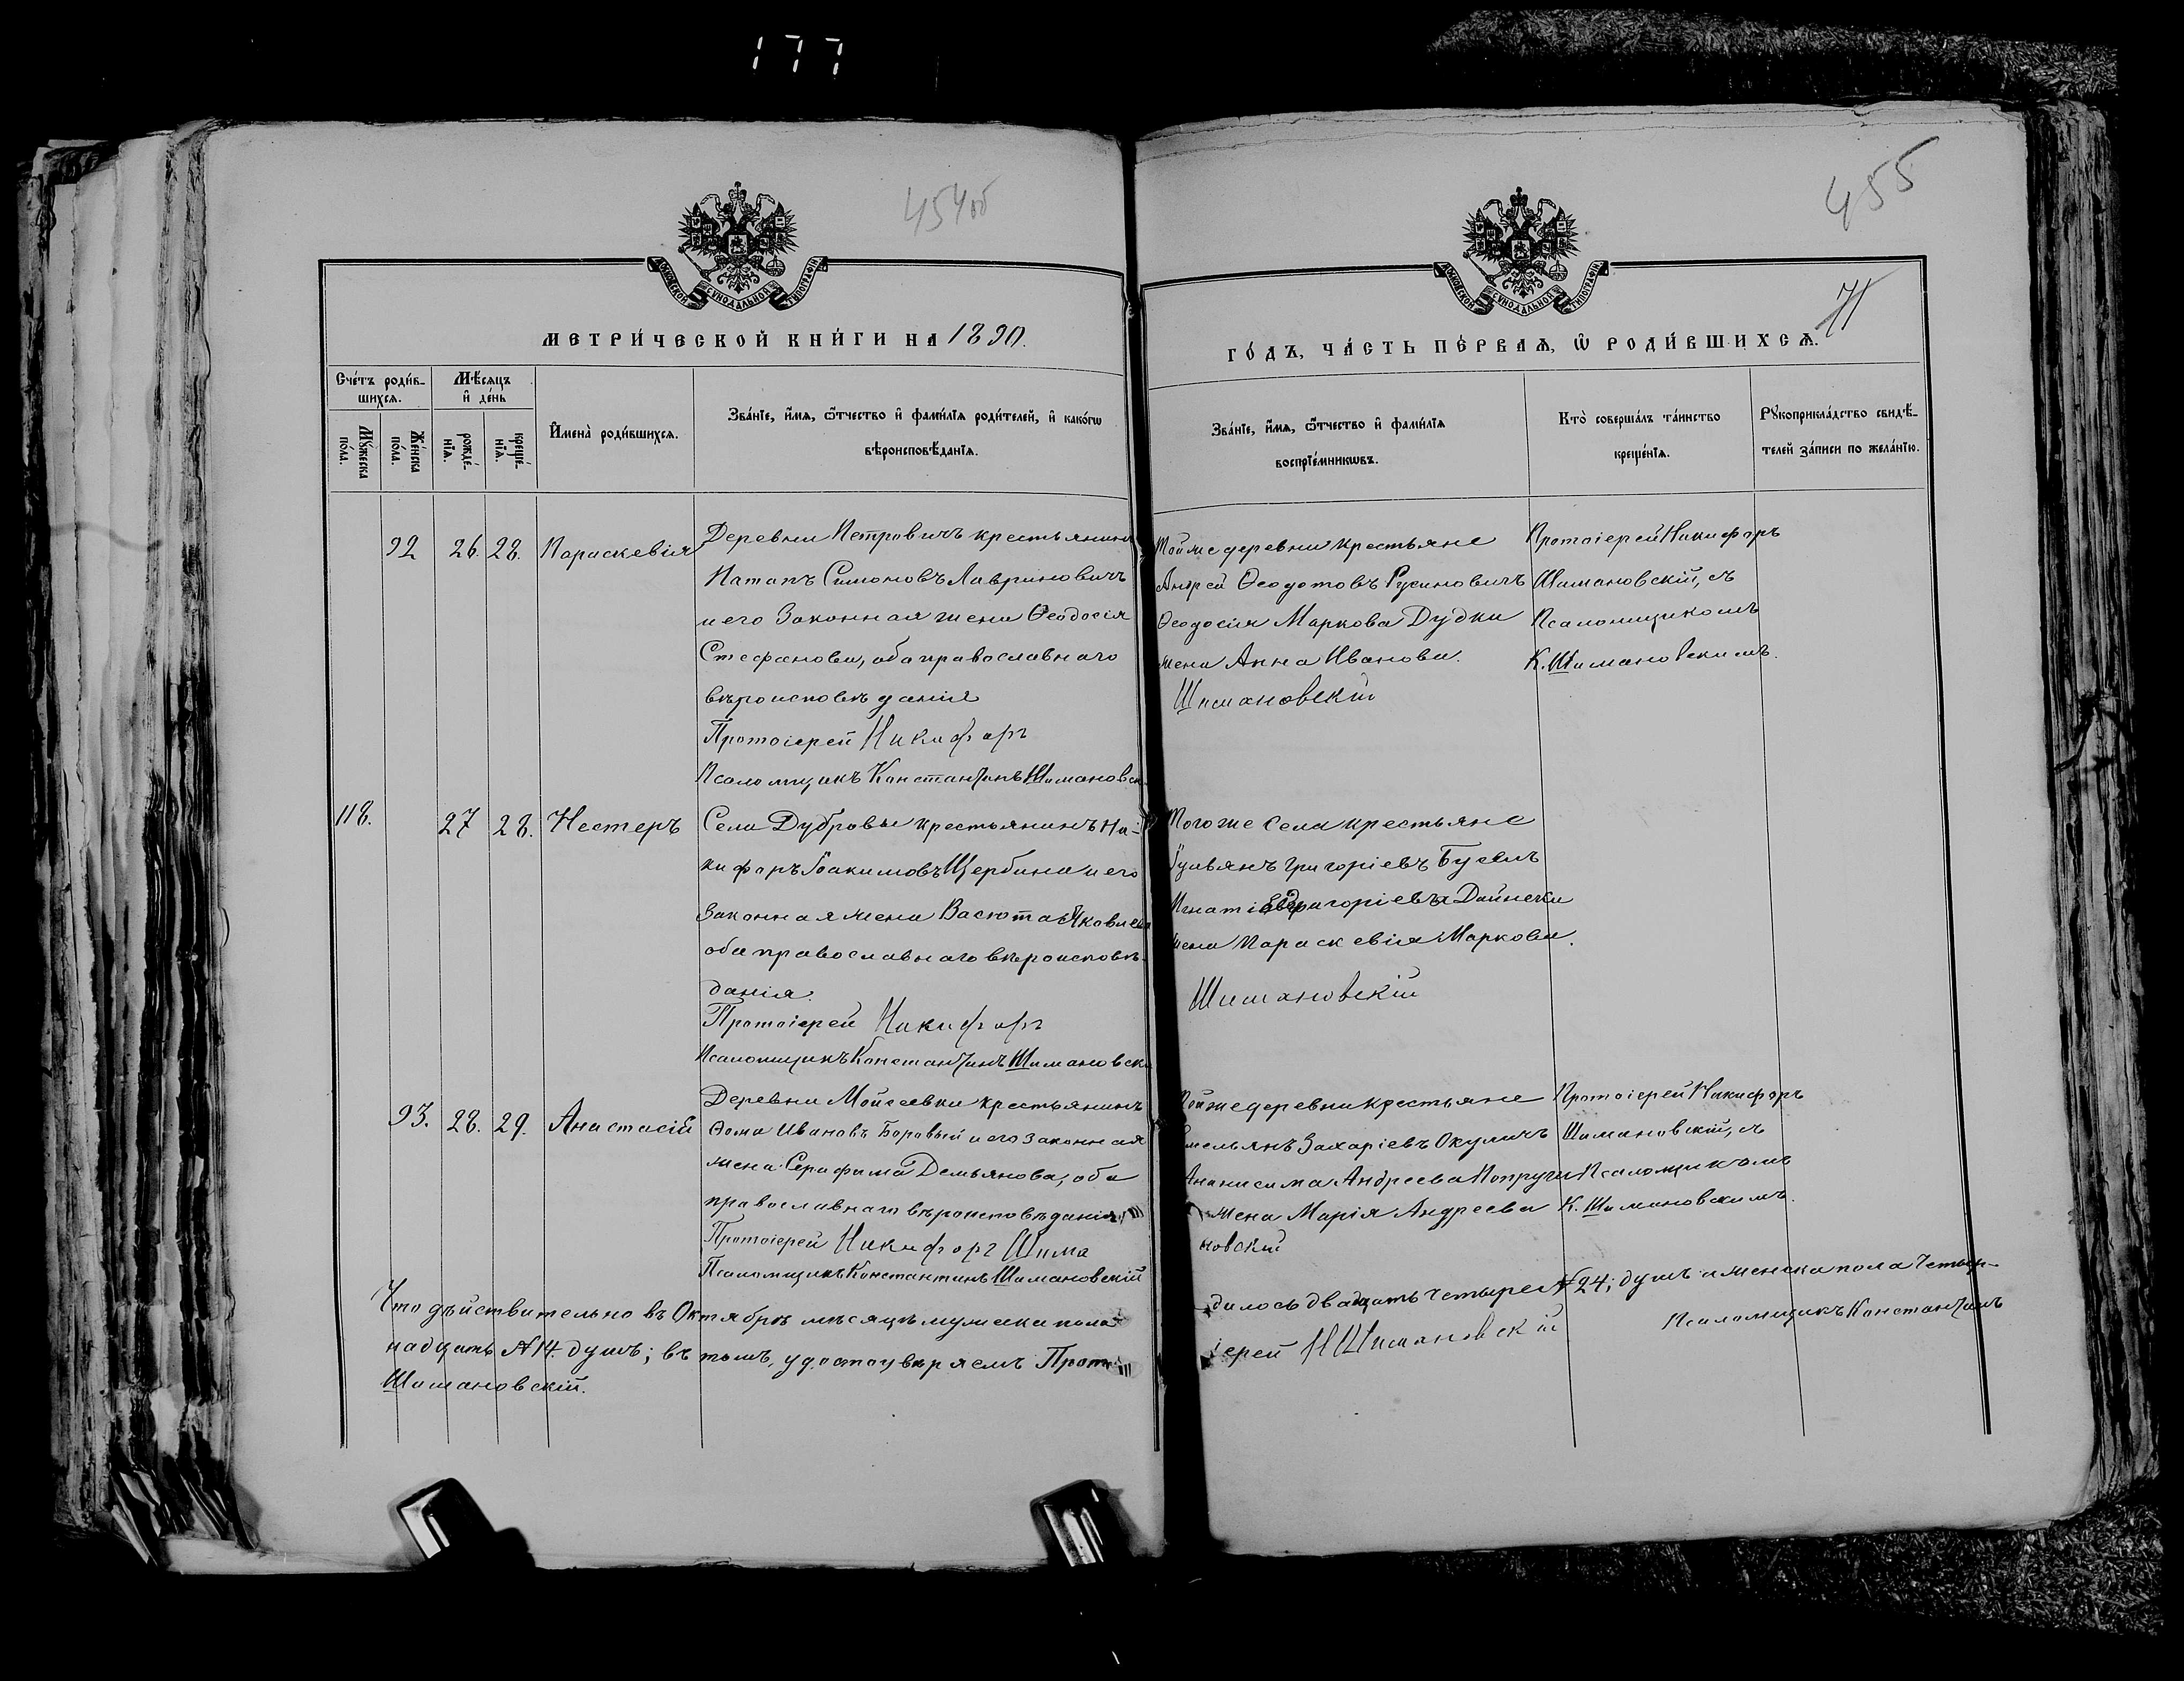 177
454 об
455
71
МОСКОВСКОЙ СѴНОДАЛЬНОЙ ТИПОГРАФІИ
МОСКОВСКОЙ СѴНОДАЛЬНОЙ ТИПОГРАФІИ
МЕТРИ́ЧЕСКОЙ КНИ́ГИ НА 1890.
ГО́ДЪ, ЧА́СТЬ ПЕ́РВАѦ, Ѿ РОДИ́ВШИХСѦ.
Сче́тъ роди́в-
шихсѧ.
Мѣ́сѧцъ
и҆ де́нь
Мꙋ́жеска
по́ла.
Же́нска
по́ла.
рожде́-
нїѧ.
креще́-
нїѧ.
И҆мена̀ роди́вшихсѧ.
Зва́нїе, и҆́мѧ, ѻ҆́тчество и҆ фами́лїѧ роди́телей, и҆ како́гѡ
вѣроисповѣ́данїѧ.
Зва́нїе, и҆́мѧ, ѻ҆́тчество и҆ фами́лїѧ
воспрїе́мникѡвъ.
Кто̀ соверша́лъ та́инство
креще́нїѧ.
Рꙋкоприкла́дство свидѣ́-
телей за́писи по жела́нїю.
92 26. 28. Параскевія
Деревни Петровичъ крестьянинъ
Патапъ Симоновъ Лавриновичъ
и его законная жена Ѳеодосія
Стефанова, оба православнаго
вѣроисповѣданія
Протоіерей Никифоръ
Псаломщикъ Константинъ Шимановск
Той же деревни крестьяне
Андрей Ѳеодотовъ Русиновичъ
Ѳеодосія Маркова Дудки
жена Анна Иванова.
Шимановскій
Протоіерей Никифоръ
Шимановскій, съ
Псаломщикомъ
К. Шимановскимъ.
118. 27 28. Нестеръ
Села Дубровы крестьянинъ Ни-
кифоръ Іоакимовъ Щербина и его
законная жена Васюта Яковлева
оба православнаго вѣроисповѣ-
данія.
Протоіерей Никифоръ
Псаломщикъ Константинъ Шимановск
Того же села крестьяне
Григоріевъ Бусель
Григоріева Дайнеки
жена Параскевія Маркова.
Шимановскій
93. 28. 29. Анастасія
Деревни Мойсеевки крестьянинъ
Ѳома Ивановъ Боровый и его законная
жена Серафима Демьянова, оба
православнаго вѣроисповѣданія
Протоіерей Никифоръ Шима
Псаломщикъ Константинъ Шимановскій
Той же деревни крестьяне
Емельянъ Захаріевъ Окуличъ
Андреева Попруги
жена Марія Андреева
новскій
Протоіерей Никифоръ
Шимановскій, съ
Псаломщикомъ
К. Шимановскимъ.
Что дѣйствительно въ Октябрѣ мѣсяцѣ мужеска пола
дилось двадцать четыре № 24; душъ а женска пола четыр-
надцать № 14. душъ; въ томъ, удостовѣряемъ Прот
іерей Н Шимановскій
Псаломщикъ Константинъ
Шимановскій.